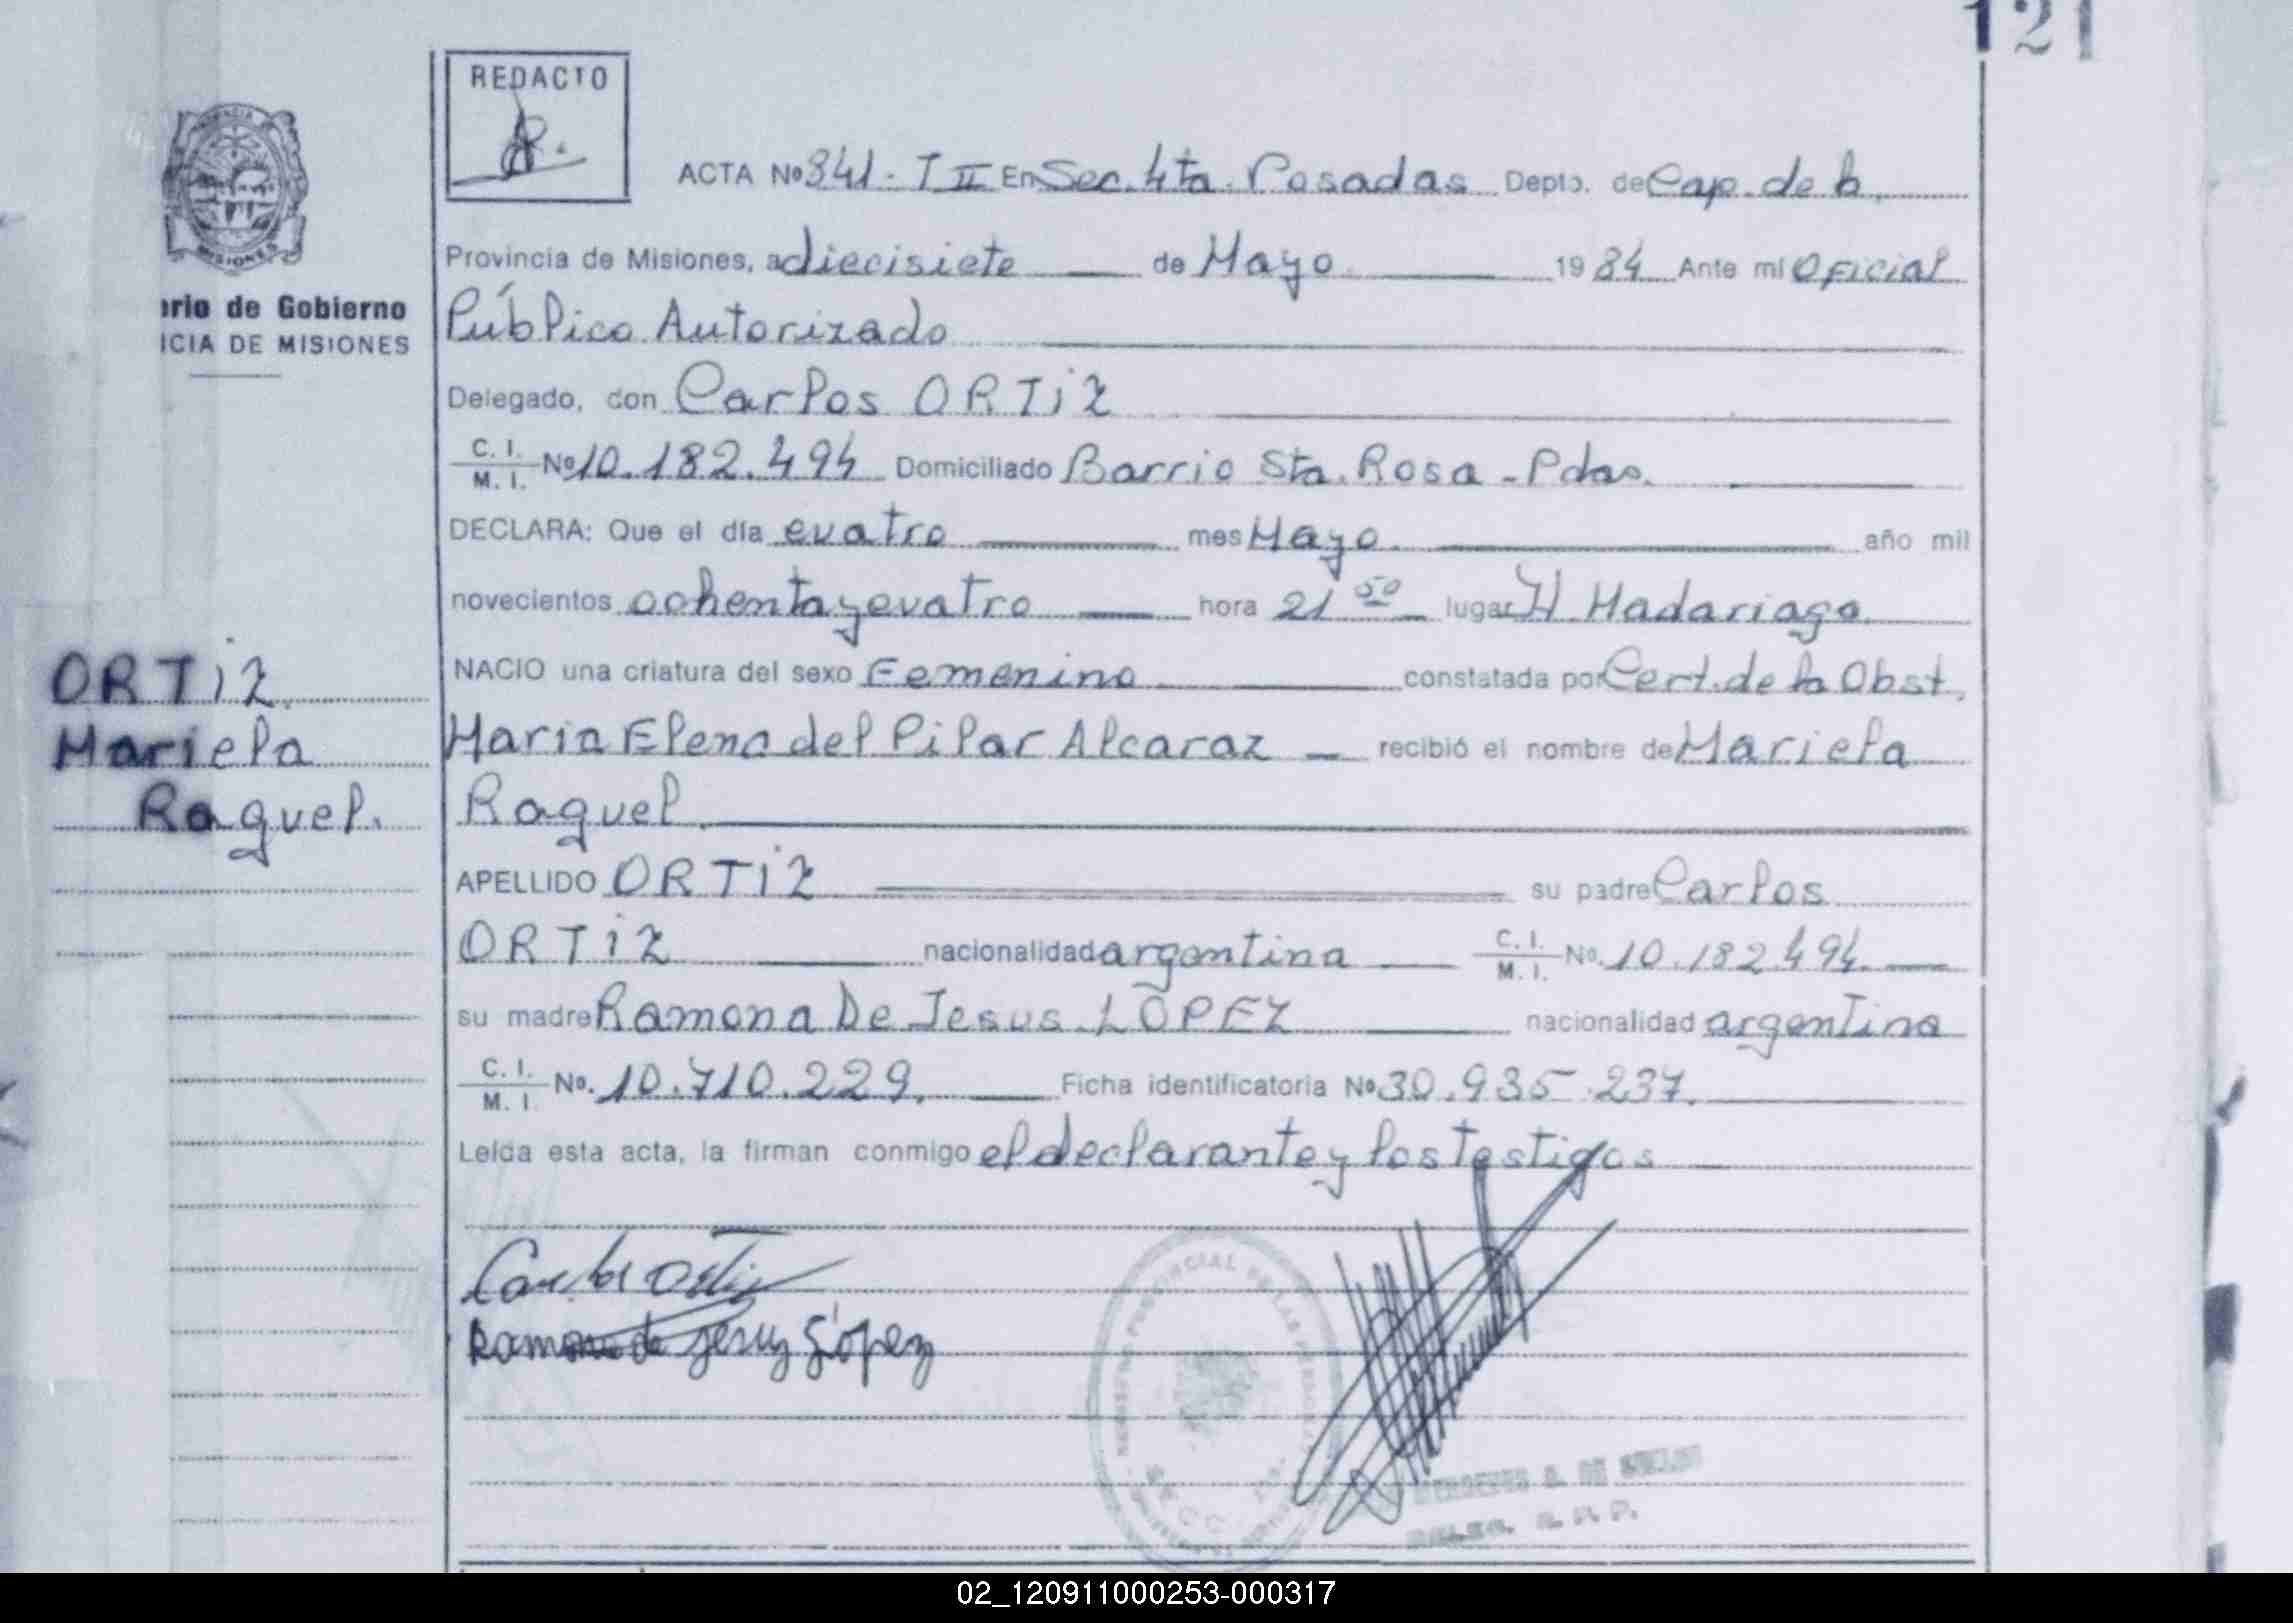 121
REDACTO
ACTA Nº 841 - T II En Sec. 4ta. Posadas Depto. de Cap. de la
Provincia de Misiones, a diecisiete de Mayo 19 84 Ante mí Oficial
Público Autorizado
Delegado, don Carlos ORTiZ
C. I.
M. I. Nº 10.182.494 Domiciliado Barrio Sta. Rosa - Pdas.
DECLARA: Que el día cuatro mes Mayo año mil
novecientos ochenta y cuatro hora 21 50 lugar H Madariaga
NACIO una criatura del sexo Femenino constatada por Cert. de la Obst.
Maria Elena del Pilar Alcaraz recibió el nombre de Mariela
Raquel
APELLIDO ORTiZ su padre Carlos
ORTiZ nacionalidad argentina C. I. M. I. Nº 10.182.494
su madre Ramona De Jesus LOPEZ nacionalidad argentina
C. I.
M. I. Nº. 10.710.229. Ficha identificatoria Nº 30.935.237.
Leída esta acta, la firman conmigo el declarante y los testigos
Carlos Ortiz
Ramona de Jesus López
erio de Gobierno
ICIA DE MISIONES
ORTiZ
Mariela
Raquel.
MISIONES
02_120911000253-000317